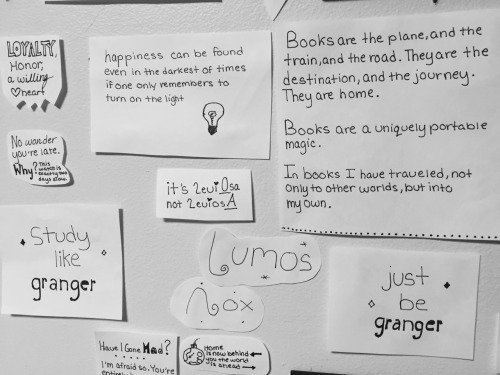 LOYALTY,
Honor,
a willing
heart
happiness can be found
even in the darkest of times
if one only remembers to
turn on the light
Books are the plane, and the
train, and the road. They are the
destination, and the journey.
They are home.
Books are a uniquely portable
magic.
In books I have traveled, not
only to other worlds, but into
my own.
No wonder
you're late.
Why? This
watch is
exactly two
days slow.
it's 2eviOsa
not 2eviosA
Study
like
granger
Lumos
Nox
just
be
granger
Have I Gone Mad?
I'm afraid so. You're
Home
is now behind
you the world
is ahead